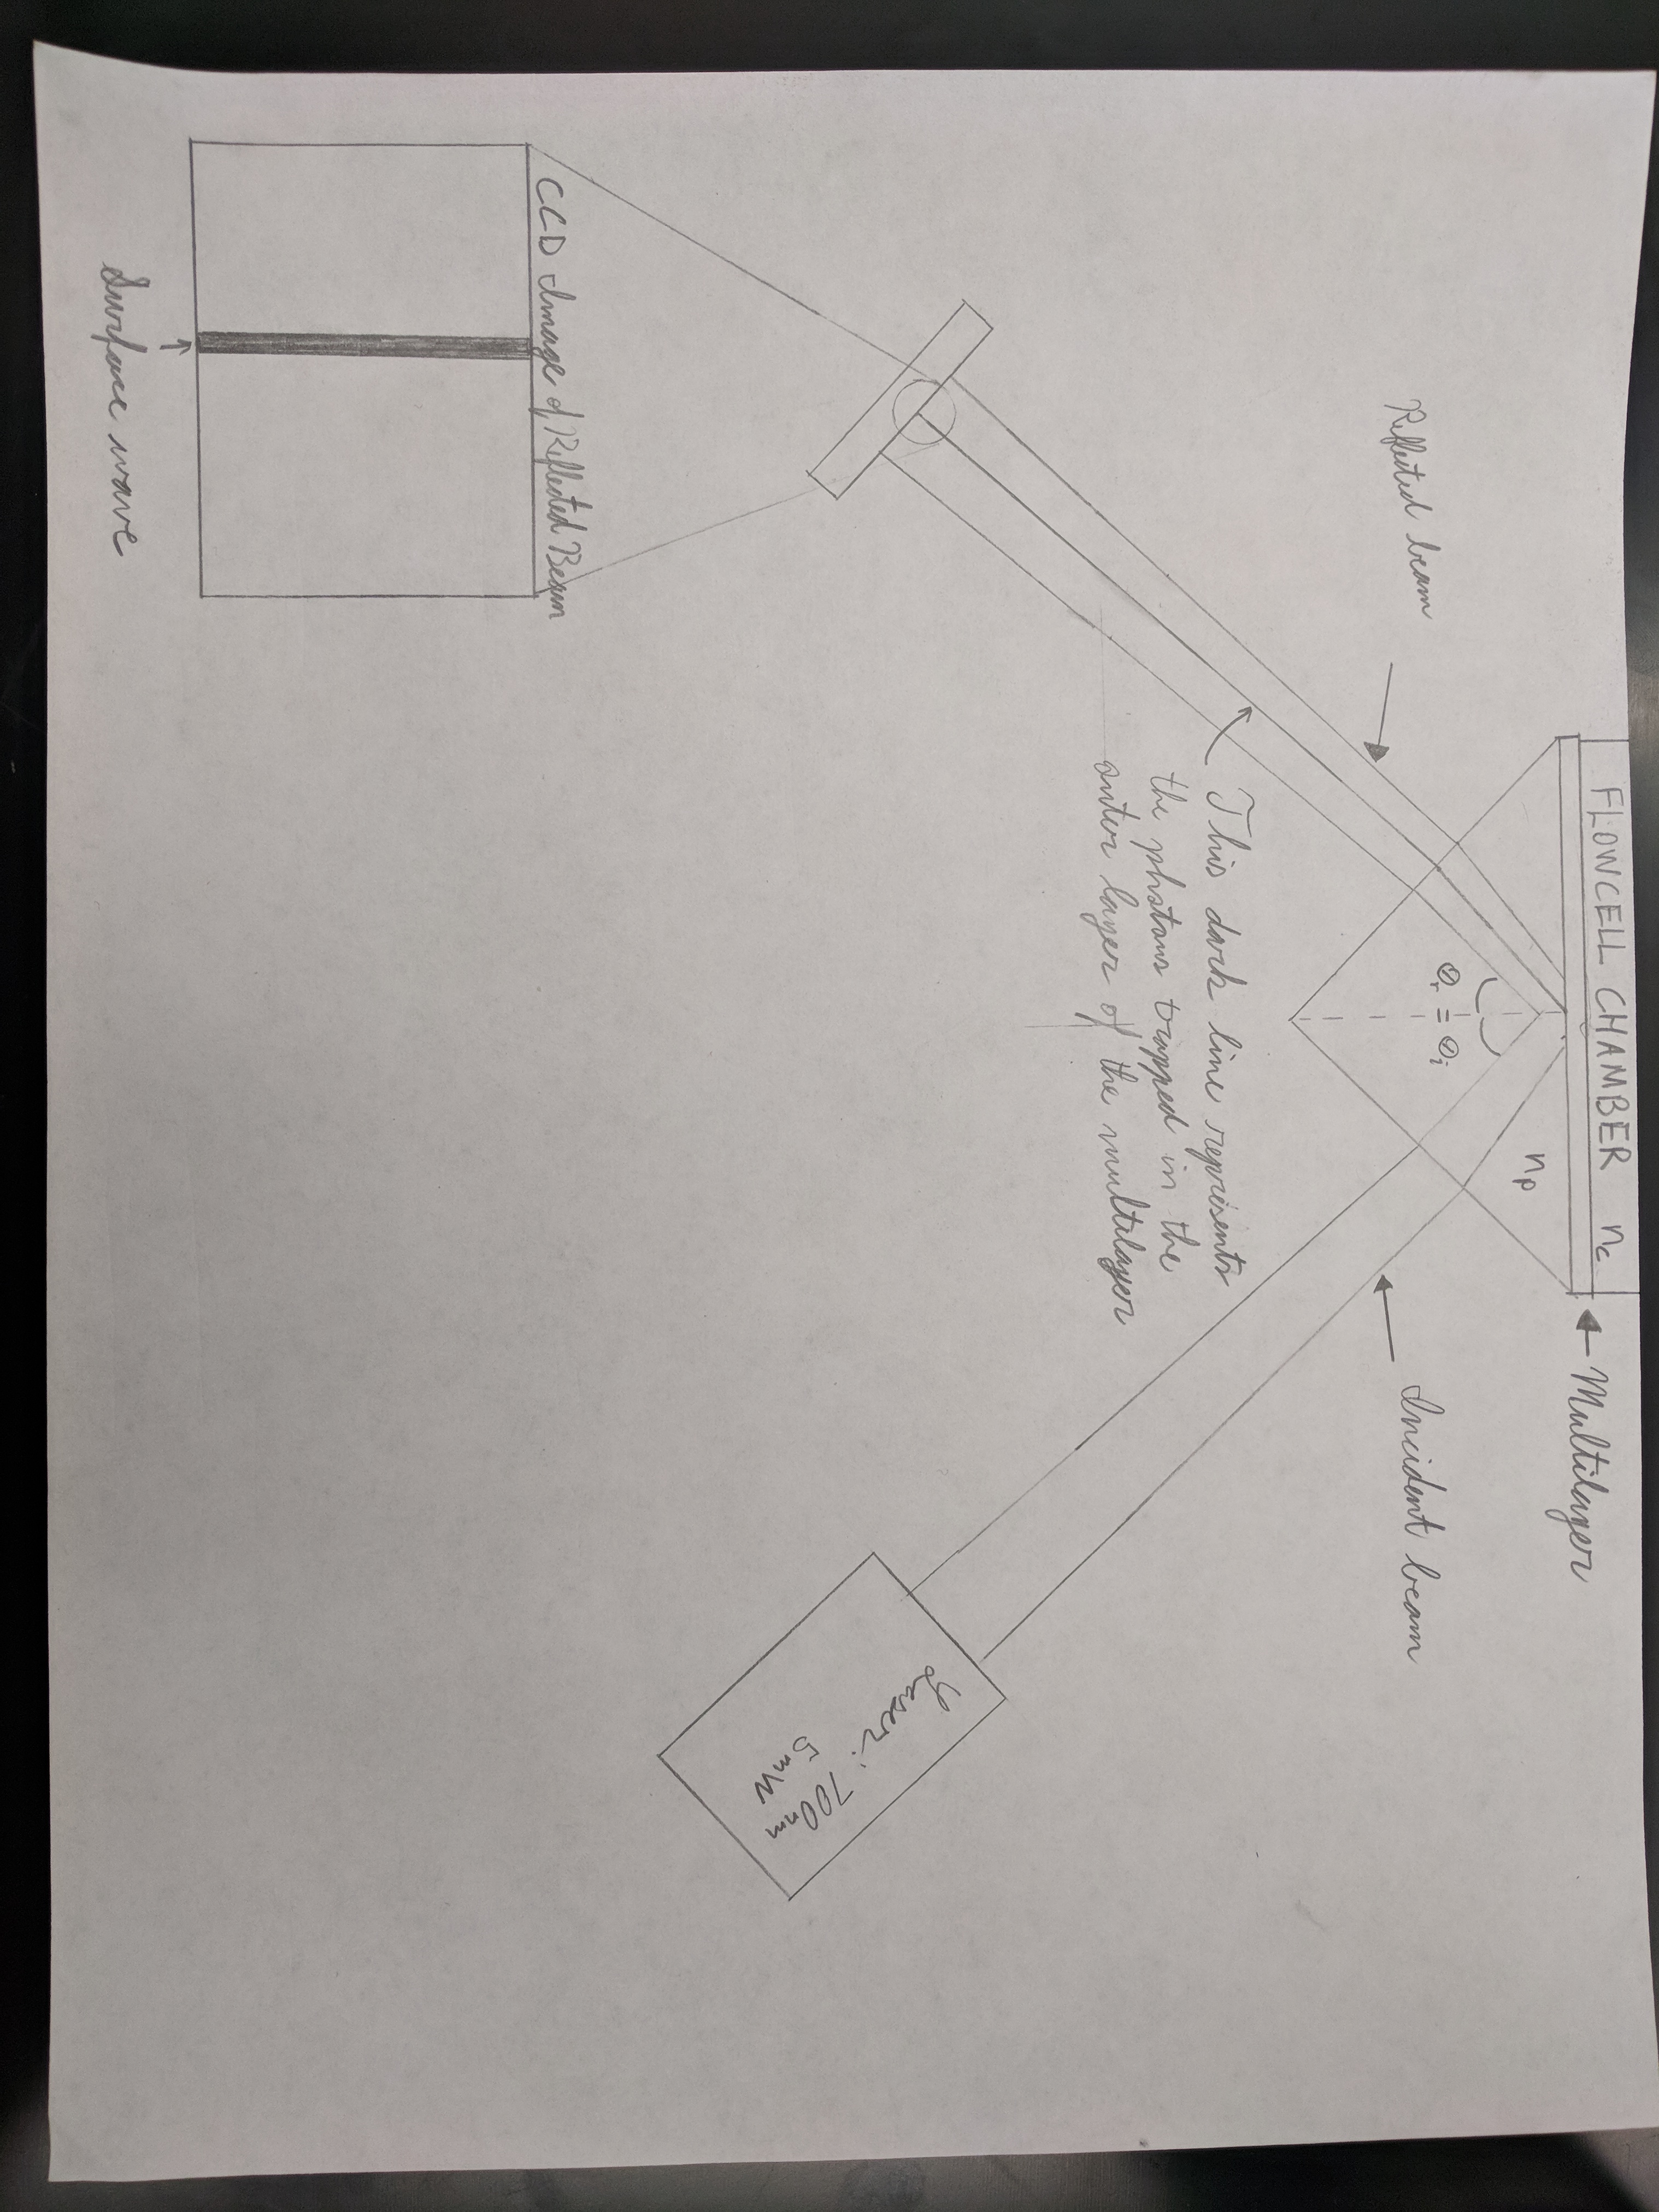 FLOWCELL CHAMBER nc
← Multilayer
np
θr = θi
Reflected beam
Incident beam
This dark line represents
the photons trapped in the
outer layer of the multilayer
Laser: 700nm
5mW
CCD Image of Reflected Beam
Surface wave